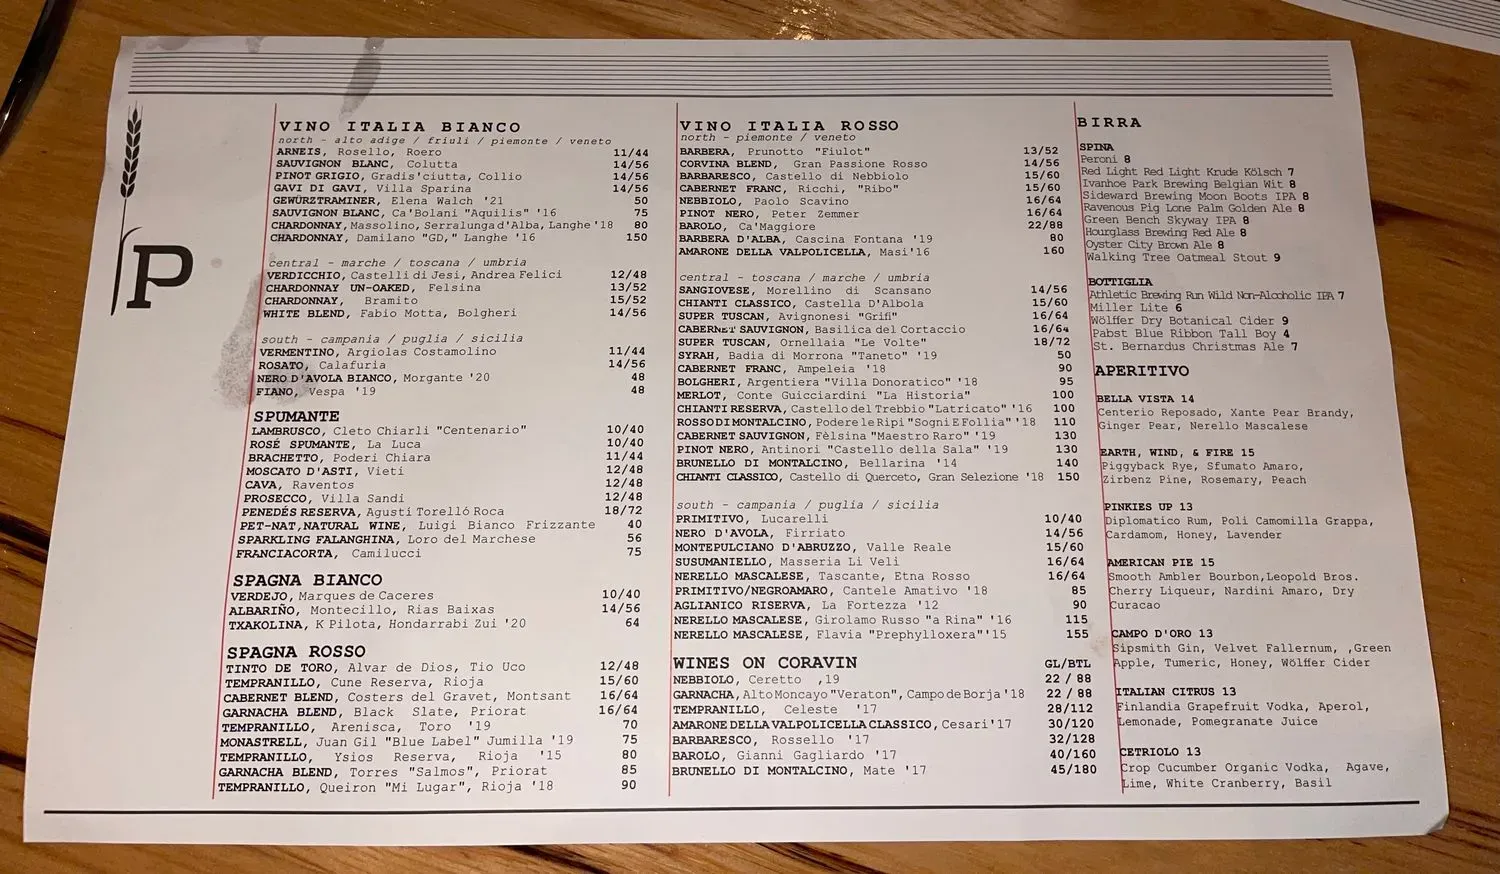 P
VINO ITALIA BIANCO
north - alto adige / friuli / piemonte / veneto
ARNEIS, Rosello, Roero 11/44
SAUVIGNON BLANC, Colutta 14/56
PINOT GRIGIO, Gradis'ciutta, Collio 14/56
GAVI DI GAVI, Villa Sparina 14/56
GEWÜRZTRAMINER, Elena Walch '21 50
SAUVIGNON BLANC, Ca'Bolani "Aquilis" '16 75
CHARDONNAY, Massolino, Serralunga d'Alba, Langhe '18 80
CHARDONNAY, Damilano "GD," Langhe '16 150
central - marche / toscana / umbria
VERDICCHIO, Castelli di Jesi, Andrea Felici 12/48
CHARDONNAY UN-OAKED, Felsina 13/52
CHARDONNAY, Bramito 15/52
WHITE BLEND, Fabio Motta, Bolgheri 14/56
south - campania / puglia / sicilia
VERMENTINO, Argiolas Costamolino 11/44
ROSATO, Calafuria 14/56
NERO D'AVOLA BIANCO, Morgante '20 48
FIANO, Vespa '19 48
SPUMANTE
LAMBRUSCO, Cleto Chiarli "Centenario" 10/40
ROSÉ SPUMANTE, La Luca 10/40
BRACHETTO, Poderi Chiara 11/44
MOSCATO D'ASTI, Vieti 12/48
CAVA, Raventos 12/48
PROSECCO, Villa Sandi 12/48
PENEDÉS RESERVA, Agustí Torelló Roca 18/72
PET-NAT, NATURAL WINE, Luigi Bianco Frizzante 40
SPARKLING FALANGHINA, Loro del Marchese 56
FRANCIACORTA, Camilucci 75
SPAGNA BIANCO
VERDEJO, Marques de Caceres 10/40
ALBARIÑO, Montecillo, Rias Baixas 14/56
TXAKOLINA, K Pilota, Hondarrabi Zui '20 64
SPAGNA ROSSO
TINTO DE TORO, Alvar de Dios, Tio Uco 12/48
TEMPRANILLO, Cune Reserva, Rioja 15/60
CABERNET BLEND, Costers del Gravet, Montsant 16/64
GARNACHA BLEND, Black Slate, Priorat 16/64
TEMPRANILLO, Arenisca, Toro '19 70
MONASTRELL, Juan Gil "Blue Label" Jumilla '19 75
TEMPRANILLO, Ysios Reserva, Rioja '15 80
GARNACHA BLEND, Torres "Salmos", Priorat 85
TEMPRANILLO, Queiron "Mi Lugar", Rioja '18 90
VINO ITALIA ROSSO
north - piemonte / veneto
BARBERA, Prunotto "Fiulot" 13/52
CORVINA BLEND, Gran Passione Rosso 14/56
BARBARESCO, Castello di Nebbiolo 15/60
CABERNET FRANC, Ricchi, "Ribo" 15/60
NEBBIOLO, Paolo Scavino 16/64
PINOT NERO, Peter Zemmer 16/64
BAROLO, Ca'Maggiore 22/88
BARBERA D'ALBA, Cascina Fontana '19 80
AMARONE DELLA VALPOLICELLA, Masi'16 160
central - toscana / marche / umbria
SANGIOVESE, Morellino di Scansano 14/56
CHIANTI CLASSICO, Castella D'Albola 15/60
SUPER TUSCAN, Avignonesi "Grifi" 16/64
CABERNET SAUVIGNON, Basilica del Cortaccio 16/64
SUPER TUSCAN, Ornellaia "Le Volte" 18/72
SYRAH, Badia di Morrona "Taneto" '19 50
CABERNET FRANC, Ampeleia '18 90
BOLGHERI, Argentiera "Villa Donoratico" '18 95
MERLOT, Conte Guicciardini "La Historia" 100
CHIANTI RESERVA, Castello del Trebbio "Latricato" '16 100
ROSSO DI MONTALCINO, Podere le Ripi "Sogni E Follia" '18 110
CABERNET SAUVIGNON, Fèlsina "Maestro Raro" '19 130
PINOT NERO, Antinori "Castello della Sala" '19 130
BRUNELLO DI MONTALCINO, Bellarina '14 140
CHIANTI CLASSICO, Castello di Querceto, Gran Selezione '18 150
south - campania / puglia / sicilia
PRIMITIVO, Lucarelli 10/40
NERO D'AVOLA, Firriato 14/56
MONTEPULCIANO D'ABRUZZO, Valle Reale 15/60
SUSUMANIELLO, Masseria Li Veli 16/64
NERELLO MASCALESE, Tascante, Etna Rosso 16/64
PRIMITIVO/NEGROAMARO, Cantele Amativo '18 85
AGLIANICO RISERVA, La Fortezza '12 90
NERELLO MASCALESE, Girolamo Russo "a Rina" '16 115
NERELLO MASCALESE, Flavia "Prephylloxera"'15 155
WINES ON CORAVIN GL/BTL
NEBBIOLO, Ceretto ,19 22 / 88
GARNACHA, Alto Moncayo "Veraton", Campo de Borja '18 22 / 88
TEMPRANILLO, Celeste '17 28/112
AMARONE DELLA VALPOLICELLA CLASSICO, Cesari'17 30/120
BARBARESCO, Rossello '17 32/128
BAROLO, Gianni Gagliardo '17 40/160
BRUNELLO DI MONTALCINO, Mate '17 45/180
BIRRA
SPINA
Peroni 8
Red Light Red Light Krude Kölsch 7
Ivanhoe Park Brewing Belgian Wit 8
Sideward Brewing Moon Boots IPA 8
Ravenous Pig Lone Palm Golden Ale 8
Green Bench Skyway IPA 8
Hourglass Brewing Red Ale 8
Oyster City Brown Ale 8
Walking Tree Oatmeal Stout 9
BOTTIGLIA
Athletic Brewing Run Wild Non-Alcoholic IPA 7
Miller Lite 6
Wölffer Dry Botanical Cider 9
Pabst Blue Ribbon Tall Boy 4
St. Bernardus Christmas Ale 7
APERITIVO
BELLA VISTA 14
Centerio Reposado, Xante Pear Brandy,
Ginger Pear, Nerello Mascalese
EARTH, WIND, & FIRE 15
Piggyback Rye, Sfumato Amaro,
Zirbenz Pine, Rosemary, Peach
PINKIES UP 13
Diplomatico Rum, Poli Camomilla Grappa,
Cardamom, Honey, Lavender
AMERICAN PIE 15
Smooth Ambler Bourbon, Leopold Bros.
Cherry Liqueur, Nardini Amaro, Dry
Curacao
CAMPO D'ORO 13
Sipsmith Gin, Velvet Fallernum, ,Green
Apple, Tumeric, Honey, Wölffer Cider
ITALIAN CITRUS 13
Finlandia Grapefruit Vodka, Aperol,
Lemonade, Pomegranate Juice
CETRIOLO 13
Crop Cucumber Organic Vodka, Agave,
Lime, White Cranberry, Basil